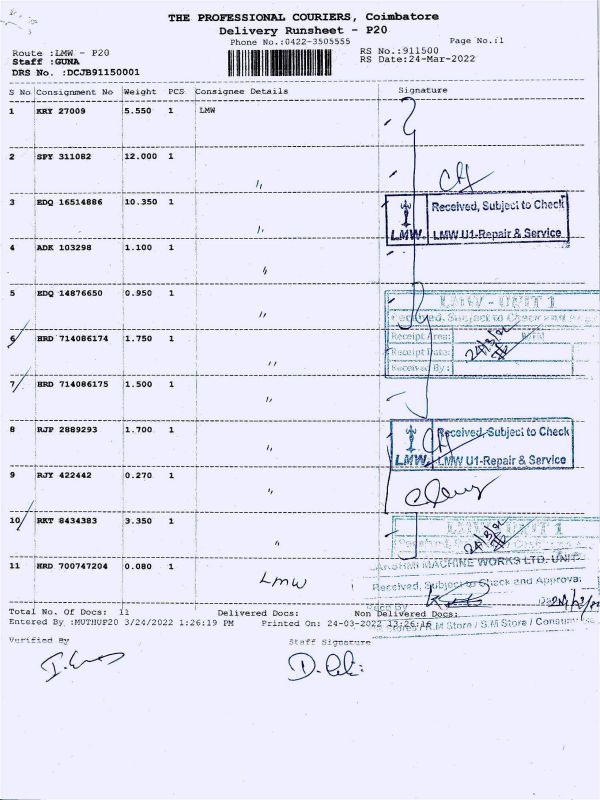 THE PROFESSIONAL COURIERS, Coimbatore
Delivery Runsheet - P20
Phone No.:0422-3505555 Page No.:1
Route :LMW - P20 RS No.:911500
Staff :GUNA RS Date:24-Mar-2022
DRS No. :DCJB91150001
S No Consignment No Weight PCS Consignee Details Signature
1 KRY 27009 5.550 1 LMW
2 SPY 311082 12.000 1 "
3 EDQ 16514886 10.350 1 "
Received, Subject to Check
LMW LMW U1-Repair & Service
4 ADK 103298 1.100 1 "
5 EDQ 14876650 0.950 1 "
LMW - UNIT 1
Received, Subject to Check and
6 HRD 714086174 1.750 1 "
Receipt Area:
Receipt Date: 24/3/22
Received By:
7 HRD 714086175 1.500 1 "
8 RJP 2889293 1.700 1 "
Received, Subject to Check
LMW LMW U1-Repair & Service
9 RJY 422442 0.270 1 "
10 RKT 8434383 3.350 1 "
LMW - UNIT 1
24/3/22
11 HRD 700747204 0.080 1 LMW
LAKSHMI MACHINE WORKS LTD. UNIT-
Received, Subject to Check and Approval
Total No. Of Docs: 11 Delivered Docs: Non Delivered Docs:
Entered By :MUTHUP20 3/24/2022 1:26:19 PM Printed On: 24-03-2022 13:26:16
R.M Store / S.M Store / Consum
Verified By Staff Signature